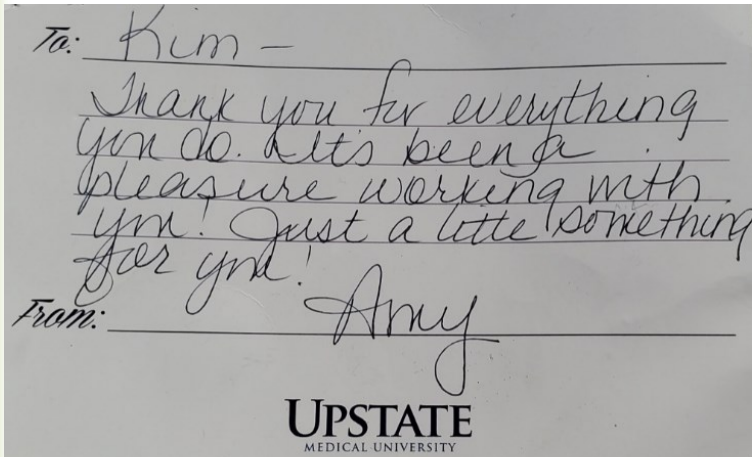 To: Kim -
Thank you for everything
you do. It's been a
pleasure working with
you! Just a little something
for you!
From: Amy
UPSTATE
MEDICAL UNIVERSITY